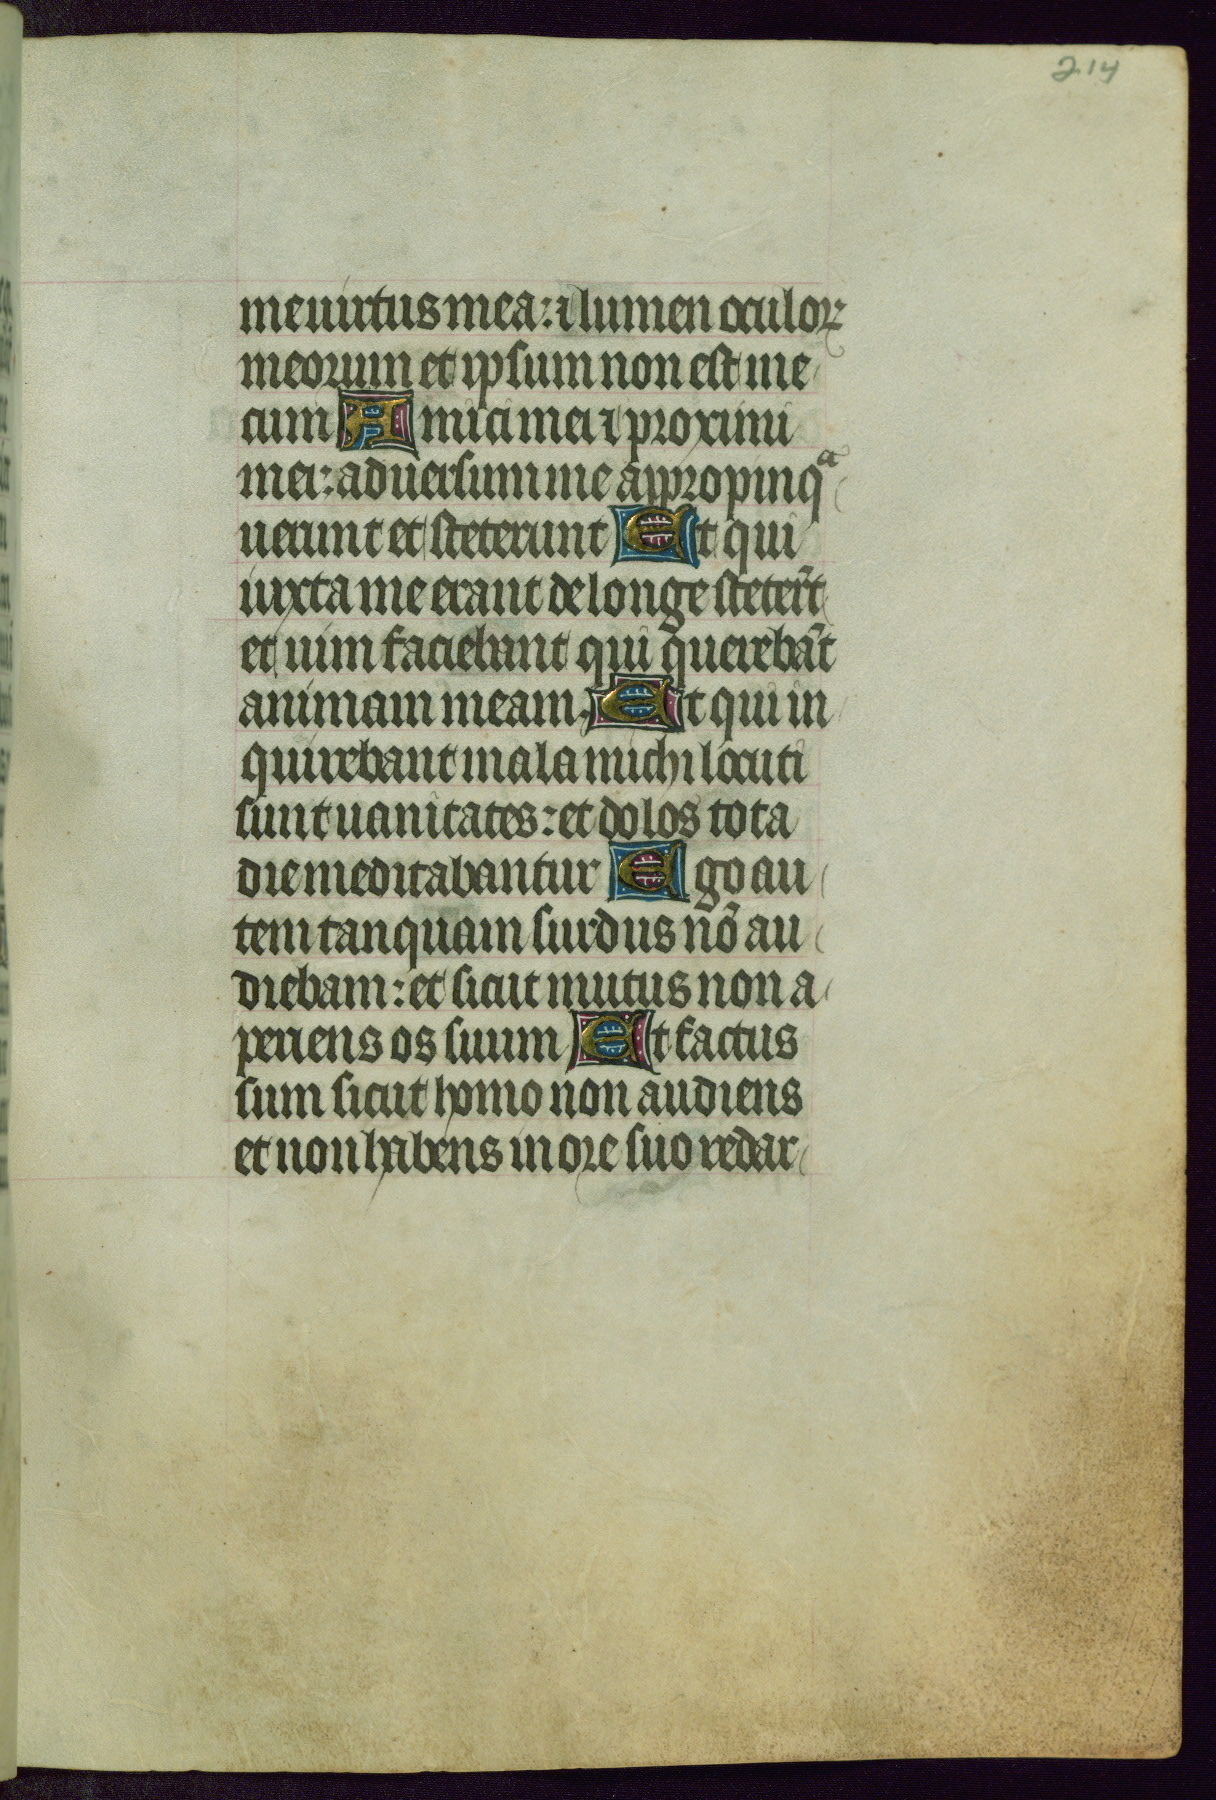 214
me uirtus mea: ⁊ lumen oculoꝝ
meorum et ipsum non est me
cum Amici mei ⁊ proximi
mei: aduersum me appropinqᵃ
uerunt et steterunt Et qui
iuxta me erant de longe steter̃t
et uim faciebant qui q̃uerebãt
animam meam. Et qui in
quirebant mala michi locuti
sunt uanitates: et dolos tota
die meditabantur Ego au
tem tanquam surdus nõ au
diebam: et sicut mutus non a
periens os suum Et factus
sum sicut homo non audiens
et non habens in ore suo redar